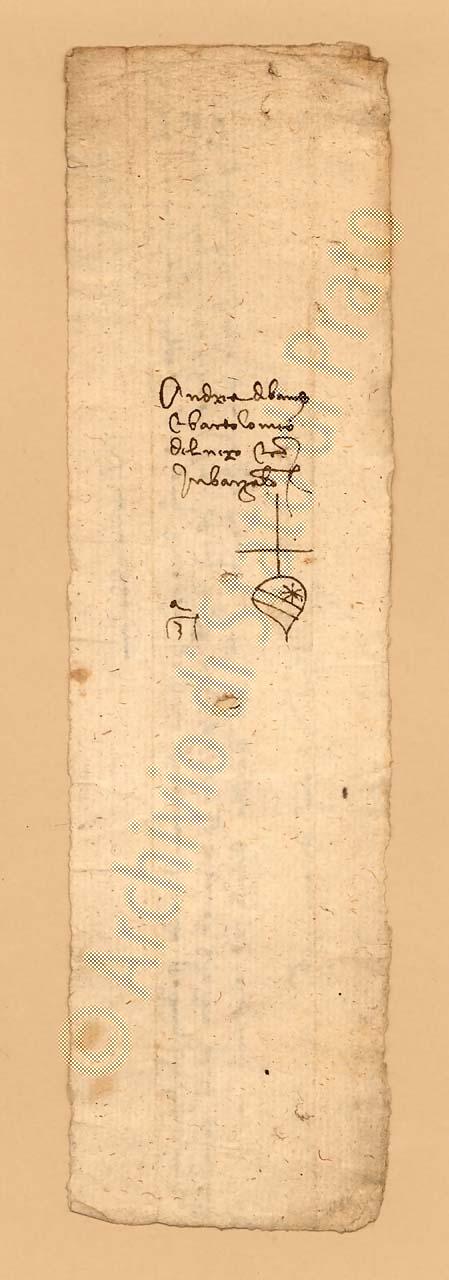 Andrea di banch
& bartolomeo
del nero &
In barzalo
a
© Archivio di Stato di Prato